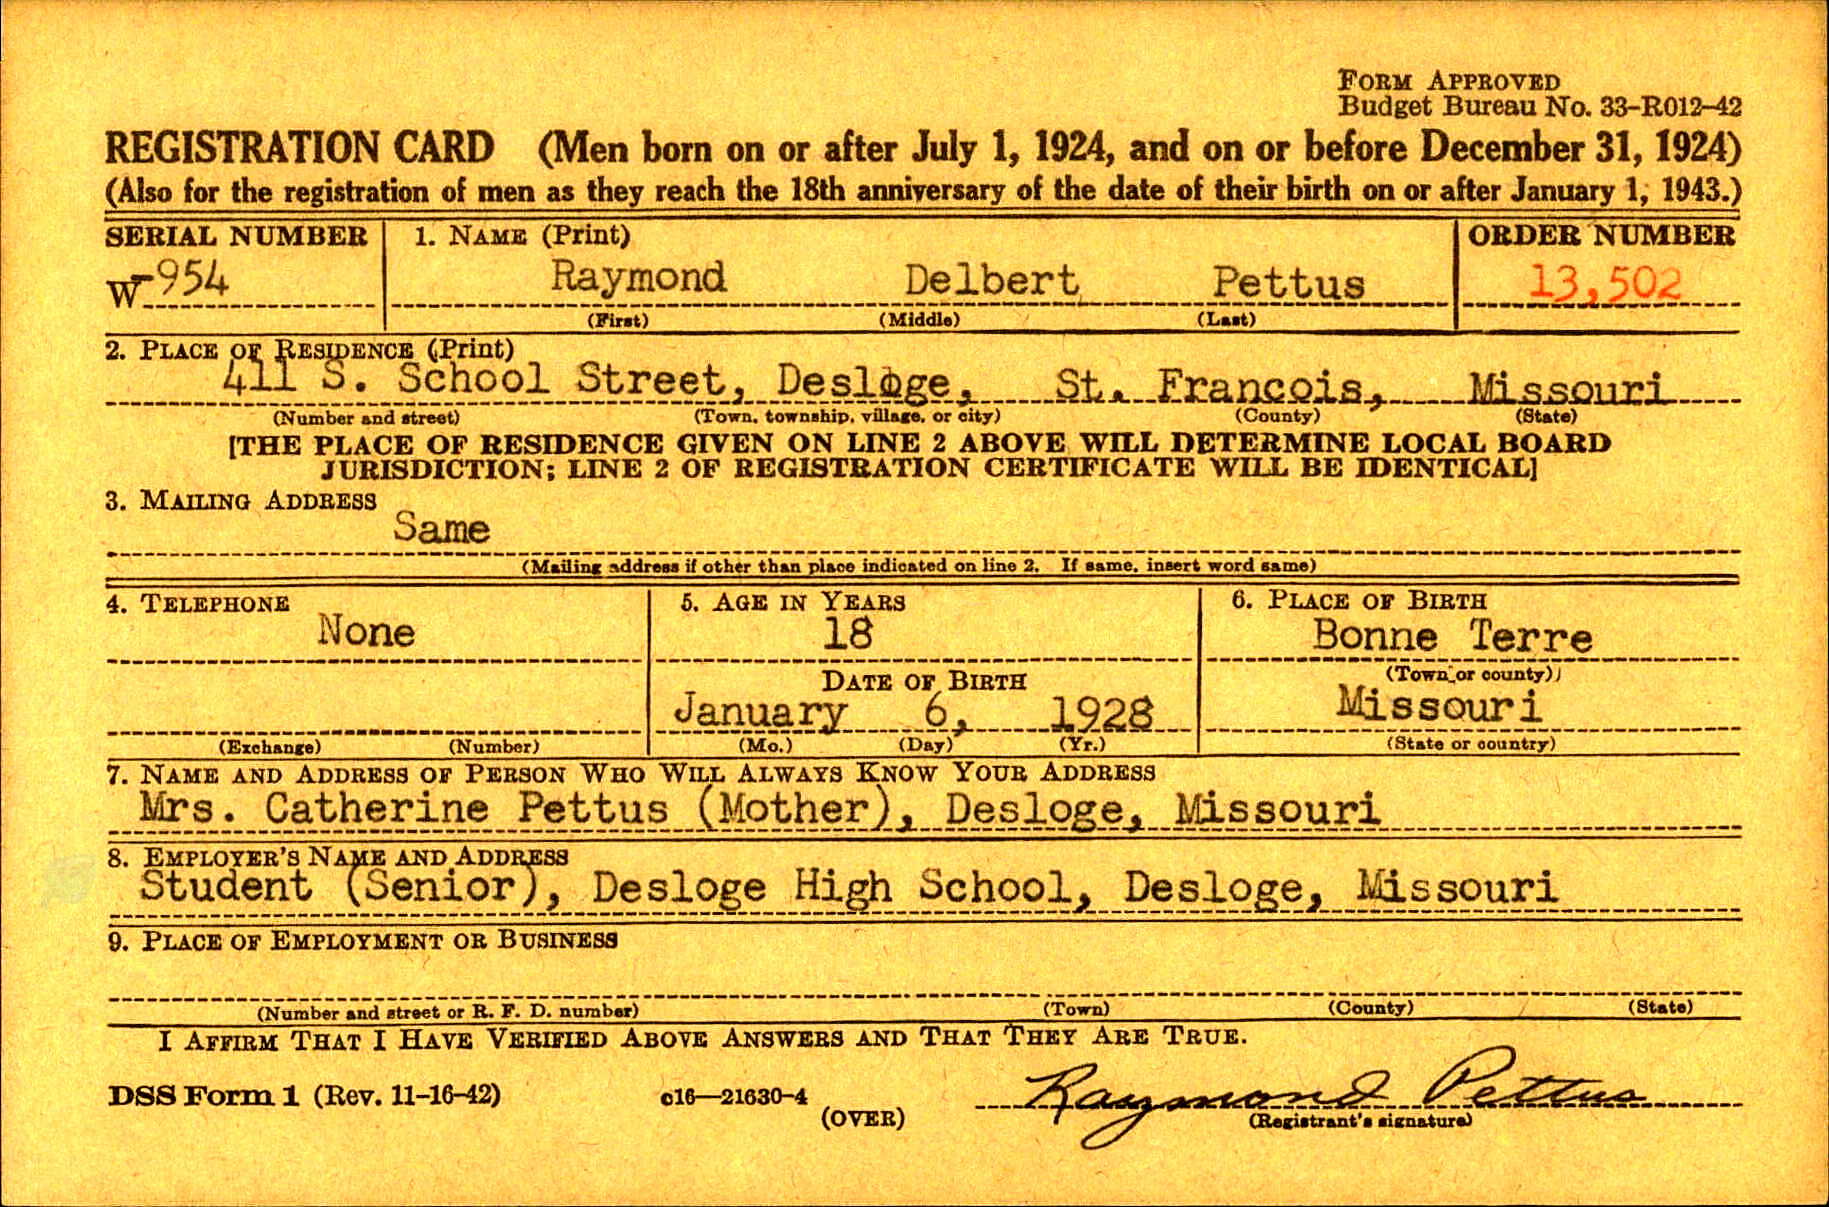 FORM APPROVED
Budget Bureau No. 33-R012-42
REGISTRATION CARD (Men born on or after July 1, 1924, and on or before December 31, 1924)
(Also for the registration of men as they reach the 18th anniversary of the date of their birth on or after January 1, 1943.)
SERIAL NUMBER 1. NAME (Print) ORDER NUMBER
W-954 Raymond Delbert Pettus 13,502
(First) (Middle) (Last)
2. PLACE OF RESIDENCE (Print)
411 S. School Street, Desloge, St. Francois, Missouri
(Number and street) (Town, township, village, or city) (County) (State)
[THE PLACE OF RESIDENCE GIVEN ON LINE 2 ABOVE WILL DETERMINE LOCAL BOARD
JURISDICTION; LINE 2 OF REGISTRATION CERTIFICATE WILL BE IDENTICAL]
3. MAILING ADDRESS
Same
(Mailing address if other than place indicated on line 2. If same, insert word same)
4. TELEPHONE 5. AGE IN YEARS 6. PLACE OF BIRTH
None 18 Bonne Terre
DATE OF BIRTH (Town or county)
January 6, 1928 Missouri
(Exchange) (Number) (Mo.) (Day) (Yr.) (State or country)
7. NAME AND ADDRESS OF PERSON WHO WILL ALWAYS KNOW YOUR ADDRESS
Mrs. Catherine Pettus (Mother), Desloge, Missouri
8. EMPLOYER'S NAME AND ADDRESS
Student (Senior), Desloge High School, Desloge, Missouri
9. PLACE OF EMPLOYMENT OR BUSINESS
(Number and street or R. F. D. number) (Town) (County) (State)
I AFFIRM THAT I HAVE VERIFIED ABOVE ANSWERS AND THAT THEY ARE TRUE.
DSS Form 1 (Rev. 11-16-42) c16—21630-4 Raymond Pettus
(OVER) (Registrant's signature)